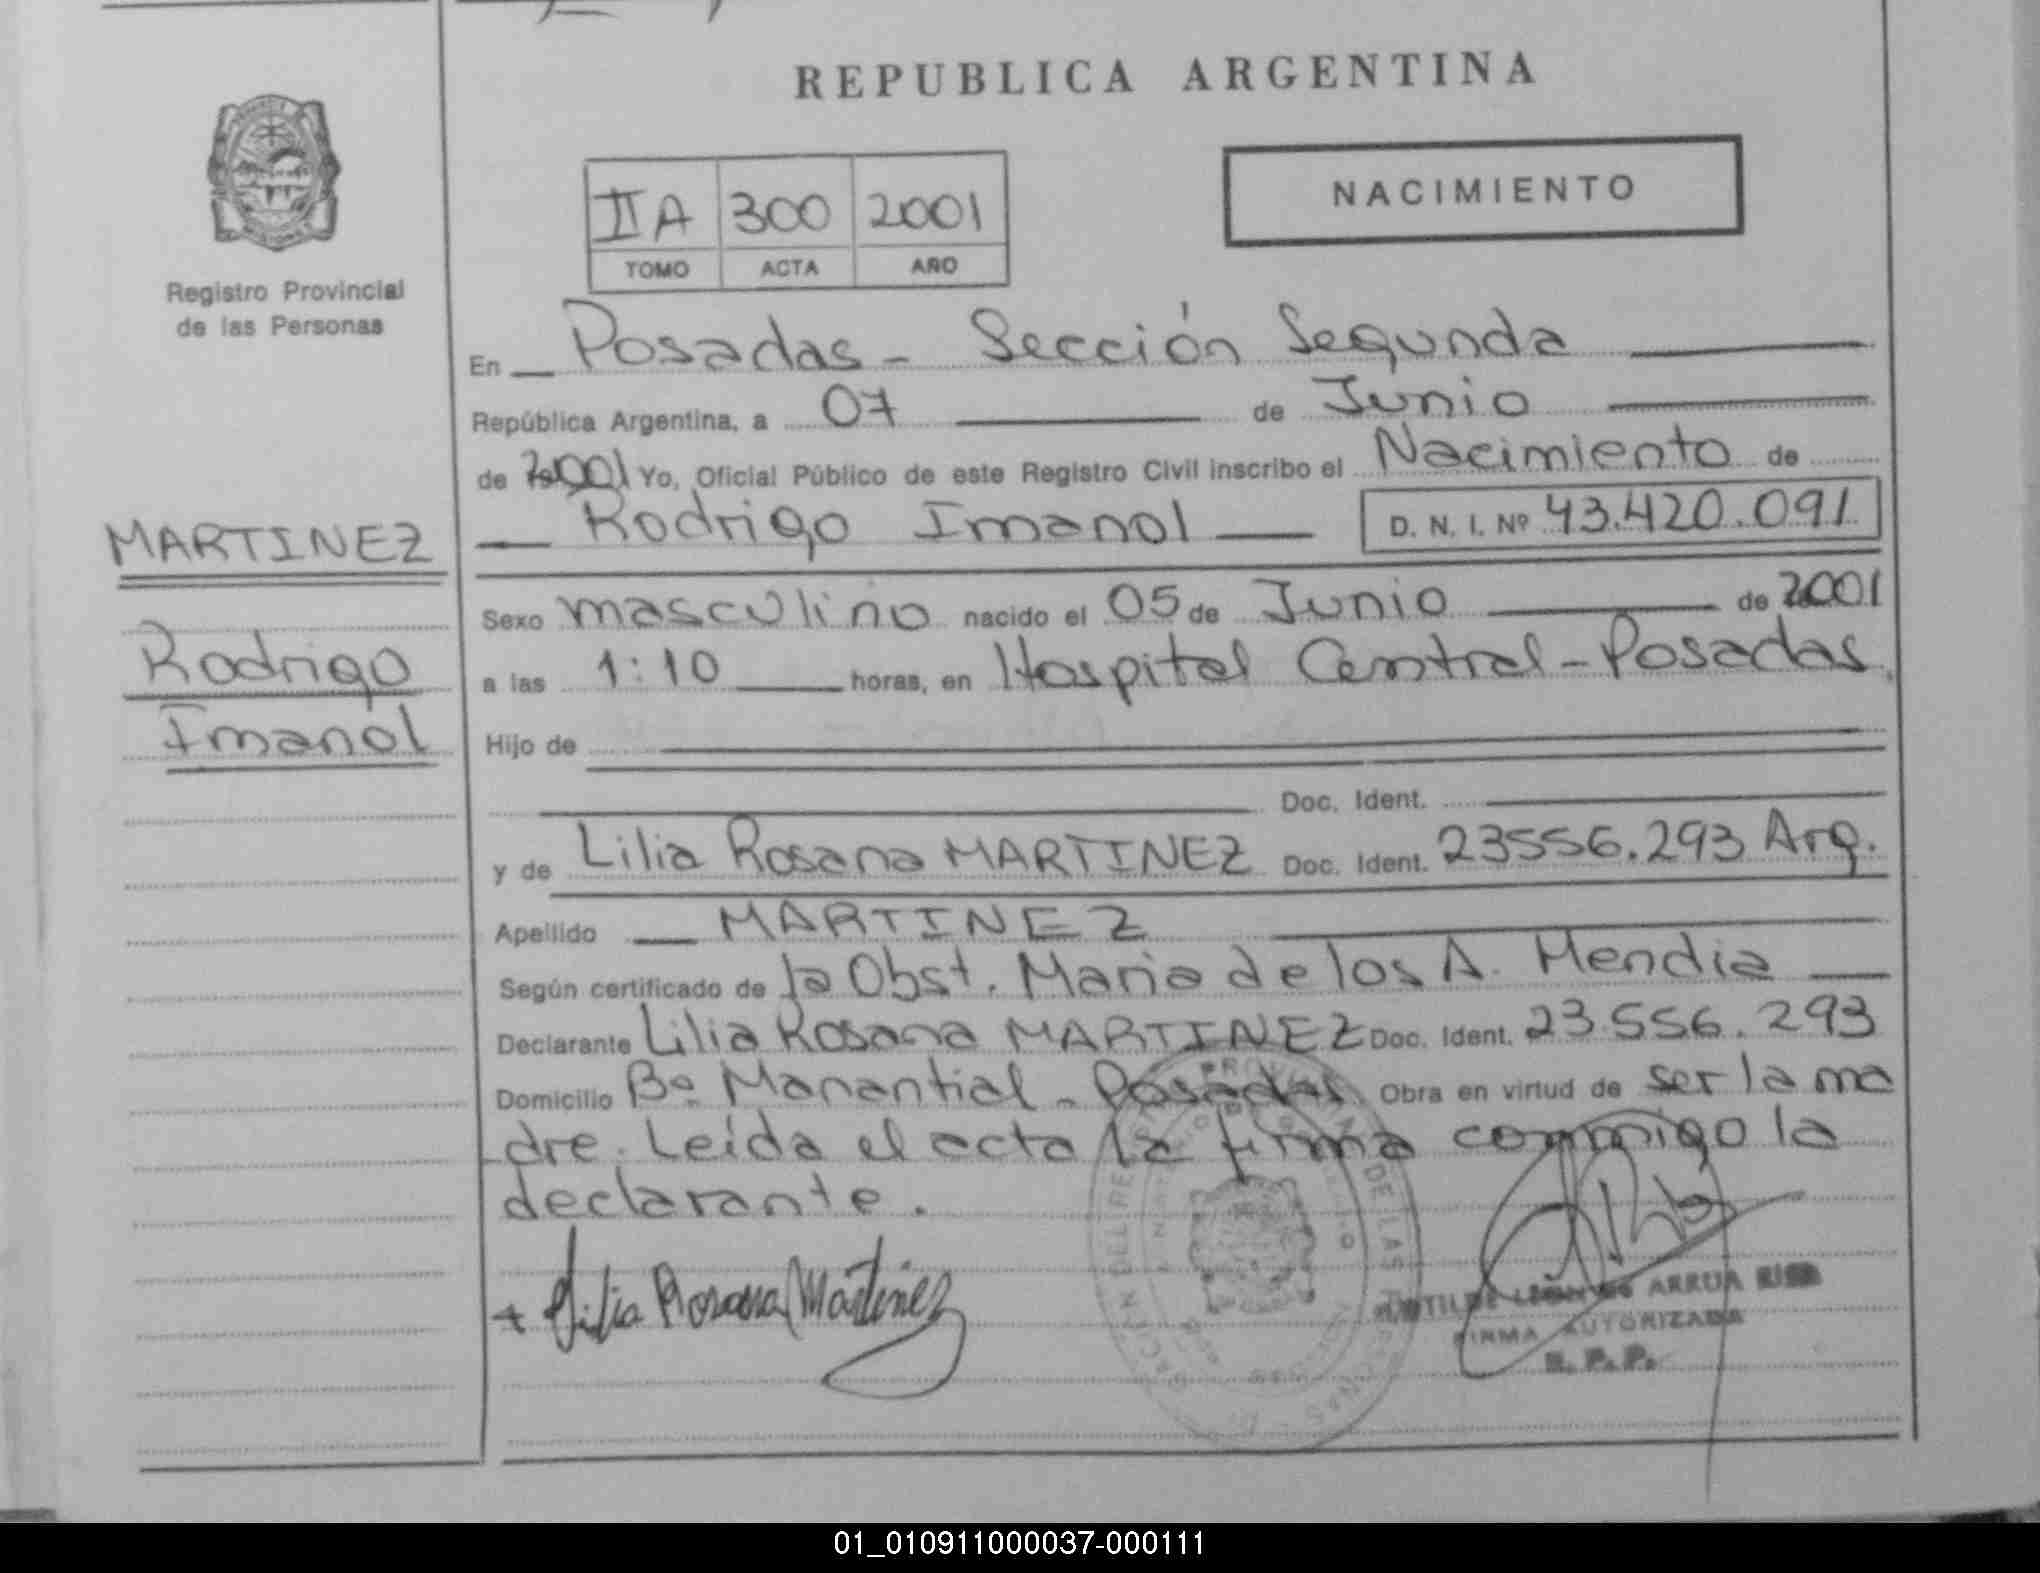 REPUBLICA ARGENTINA
NACIMIENTO
IIA 300 2001
TOMO ACTA AÑO
Registro Provincial
de las Personas
En Posadas - Sección Segunda
República Argentina, a 07 de Junio
de 2001 Yo, Oficial Público de este Registro Civil inscribo el Nacimiento de
Rodrigo Imanol D. N. I. Nº 43.420.091
MARTINEZ
Rodrigo
Imanol
Sexo masculino nacido el 05 de Junio de 2001
a las 1:10 horas, en Hospital Central - Posadas
Hijo de
Doc. Ident.
y de Lilia Rosana MARTINEZ Doc. Ident. 23556.293 Arg.
Apellido MARTINEZ
Según certificado de la Obst. Maria de los A. Mendia
Declarante Lilia Rosana MARTINEZ Doc. Ident. 23.556.293
Domicilio Bº Manantial - Posadas Obra en virtud de ser la ma
dre. Leída el acta la firma conmigo la
declarante.
Lilia Rosana Martinez
ARRUA
FIRMA AUTORIZADA
R. P. P.
01_010911000037-000111